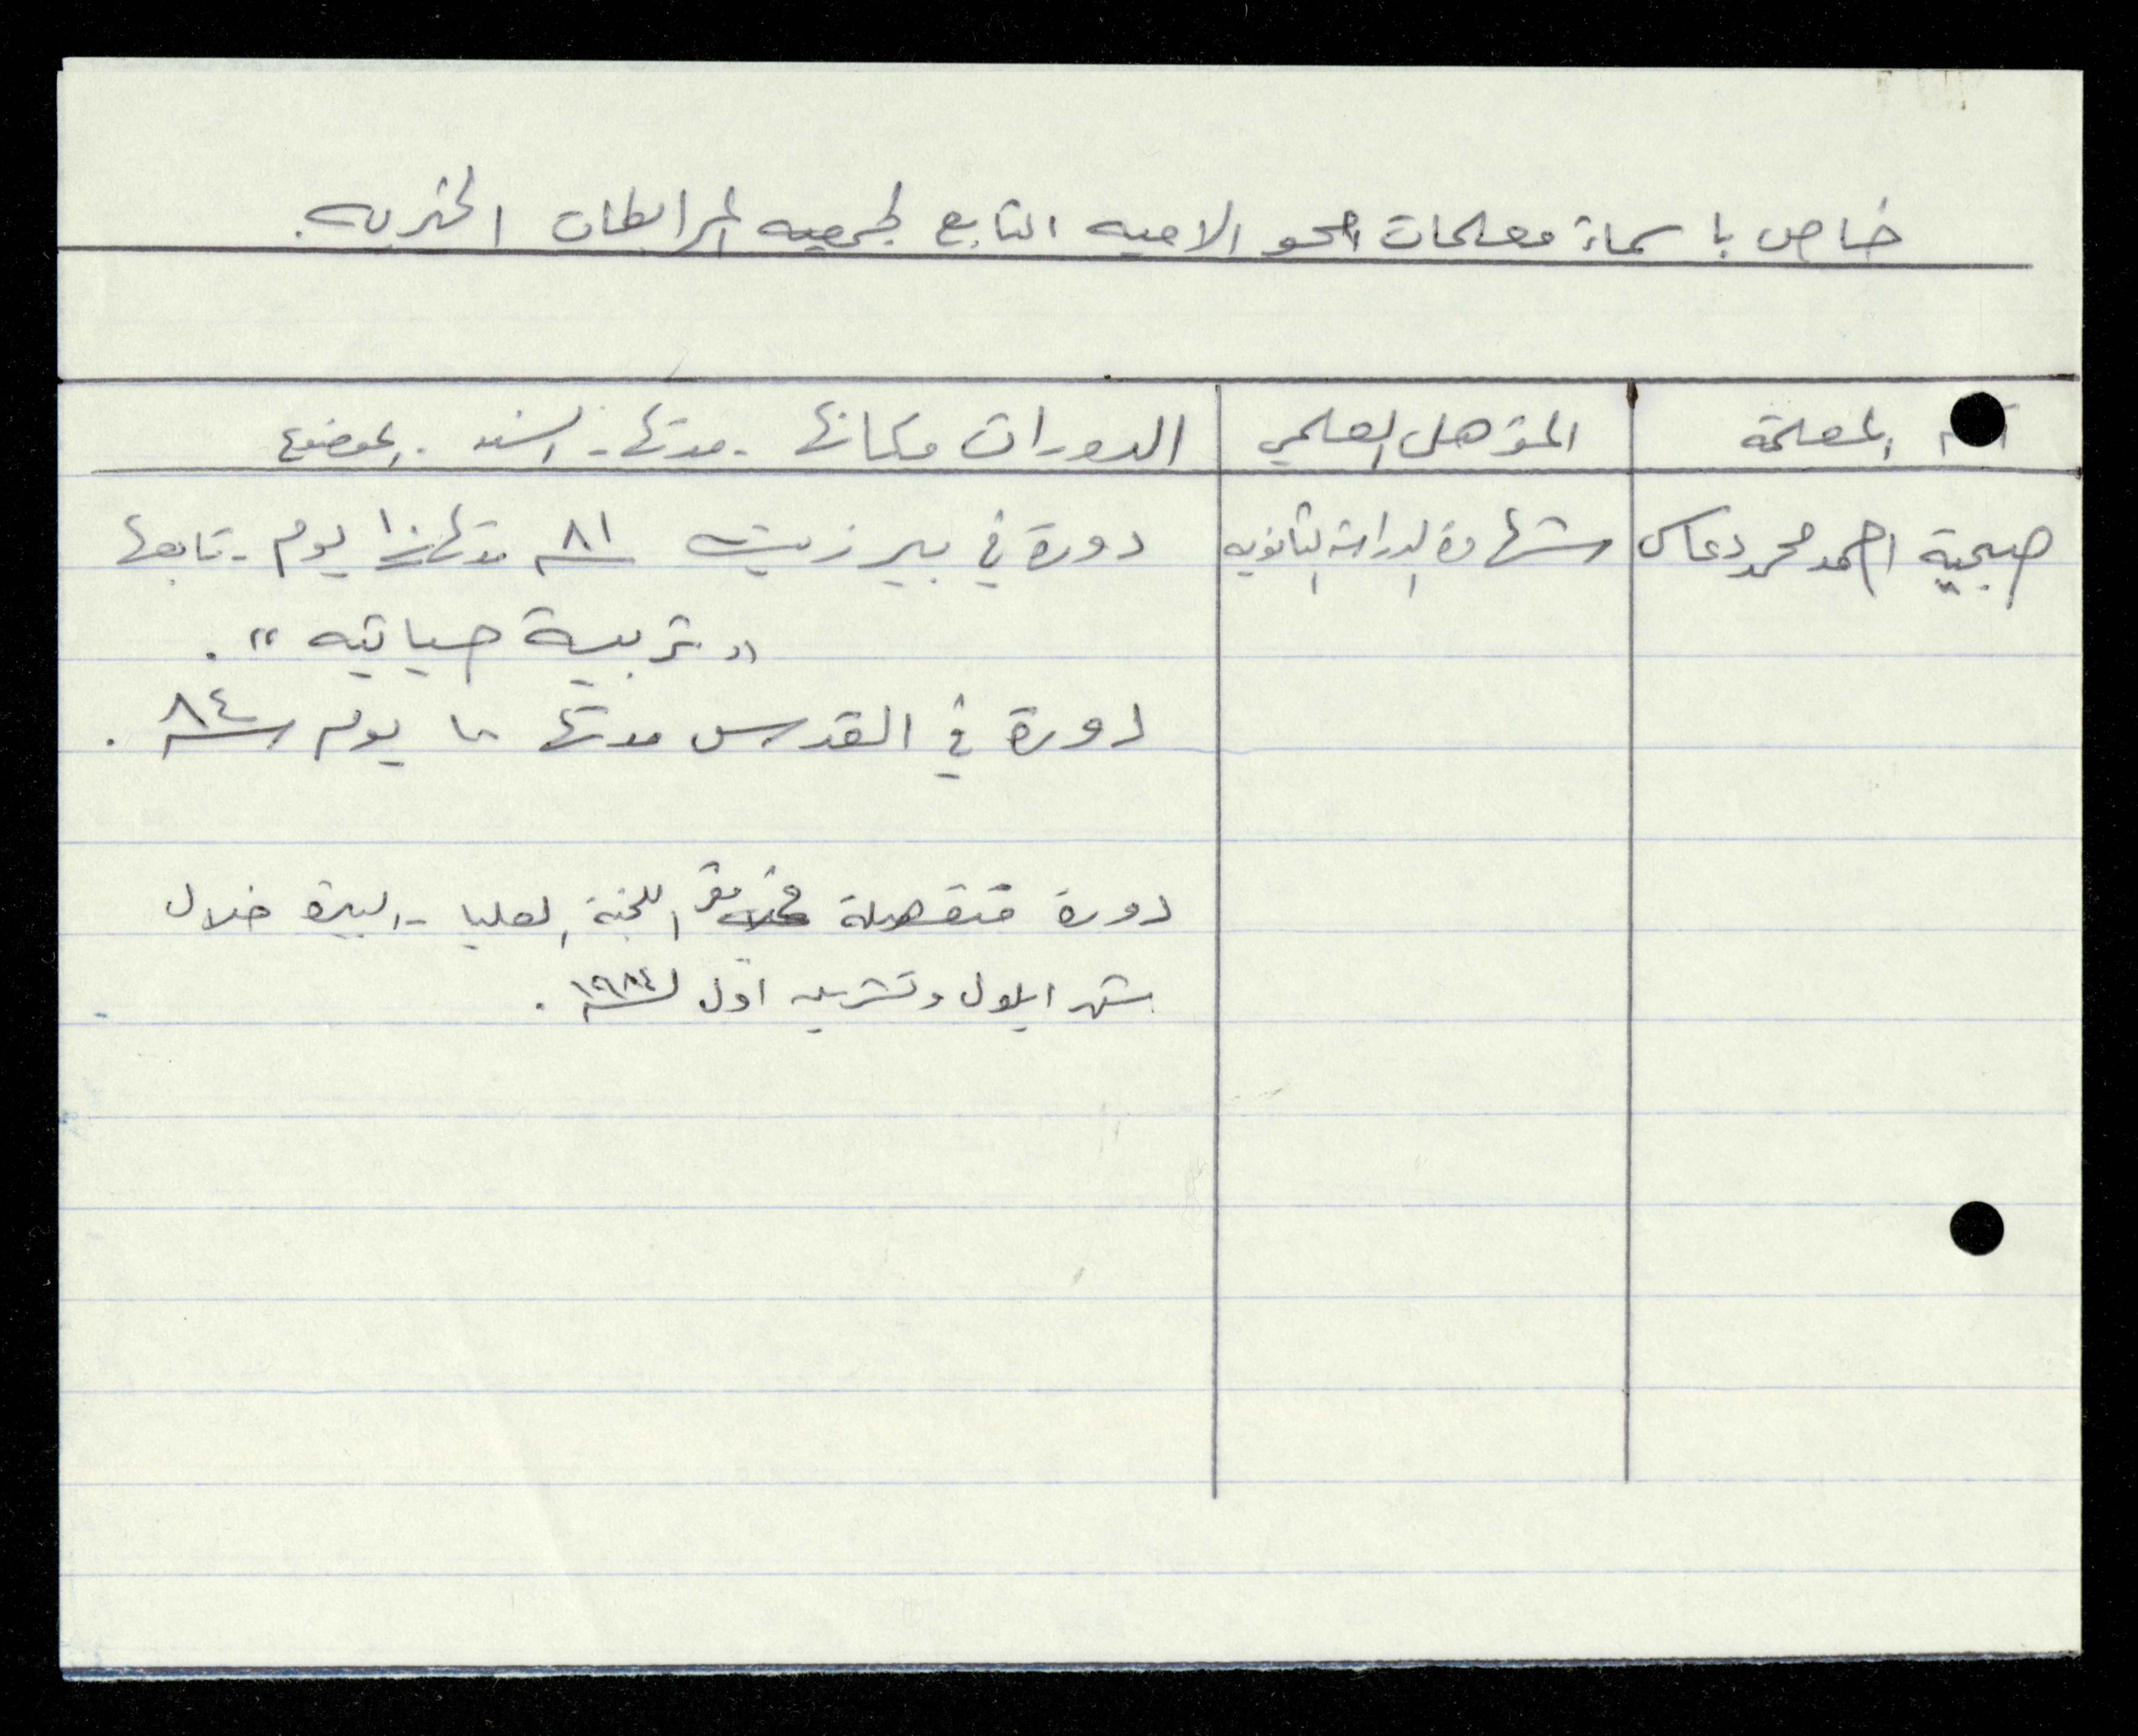 خاص باسماء معلمات محو الاميه التابع لجمعيه المرابطات الخيريه.
اسم المعلمة
المؤهل العلمي
الدورات مكانها - مدتها - السنه - الموضوع
صبحية احمد محمد دعاس
شهادة الدراسة الثانويه
دورة في بير زيت سنة ٨١ مدتها ١٠ يوم - تابعها
"تربية حياتيه".
دورة في القدس مدتها يوم سنة ٨٤.
دورة في مقر اللجنة العليا - البيرة خلال
شهر ايلول وتشرين اول لسنة ١٩٨٤.